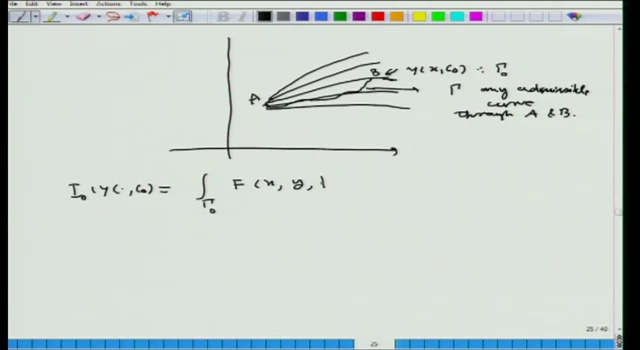 Edit View Insert Actions Tools Help
B y(x, C0) : Γ0
A
Γ any admissible
curve
through A & B.
I0(y(·, C0) = ∫Γ0 F(x, y, 
25 / 40
25